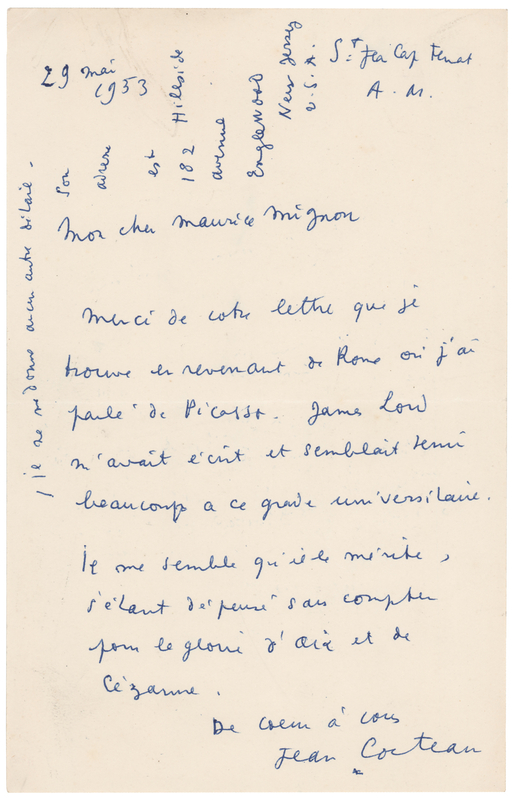 29 mai
1953
St Jean Cap Ferrat
A. M.
Mon cher Maurice Mignon
Merci de votre lettre que je
trouve en revenant de Rome où j'ai
parlé de Picasso. James Lord
m'avait écrit et semblait tenir
beaucoup a ce grade universitaire.
Il me semble qu'il le mérite,
s'étant dépensé sans compter
pour la gloire d'Aix et de
Cézanne.
De cœur à vous
Jean Cocteau
*
Son
adresse
est
182 Hillside
avenue
Englewood
New Jersey
U.S.A.
Il ne me donne aucun autre détail.